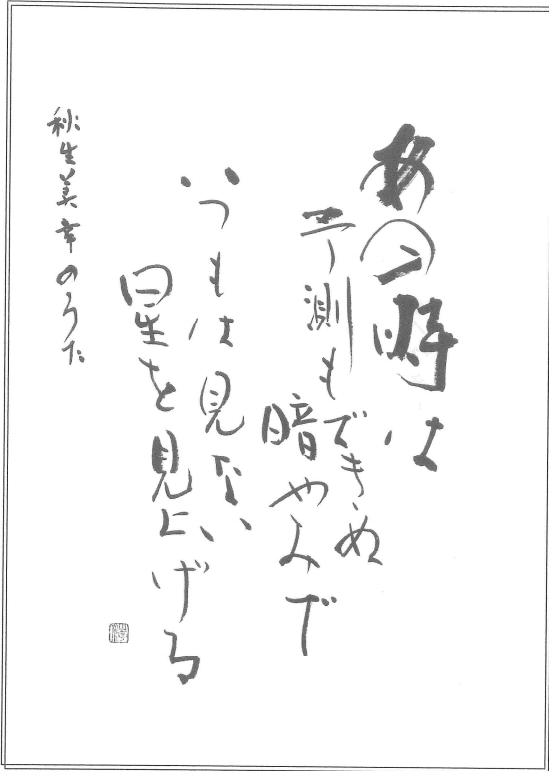 あの時は
予測もできぬ
暗やみで
いつもは見ない
星を見上げる
秋生美幸のうた